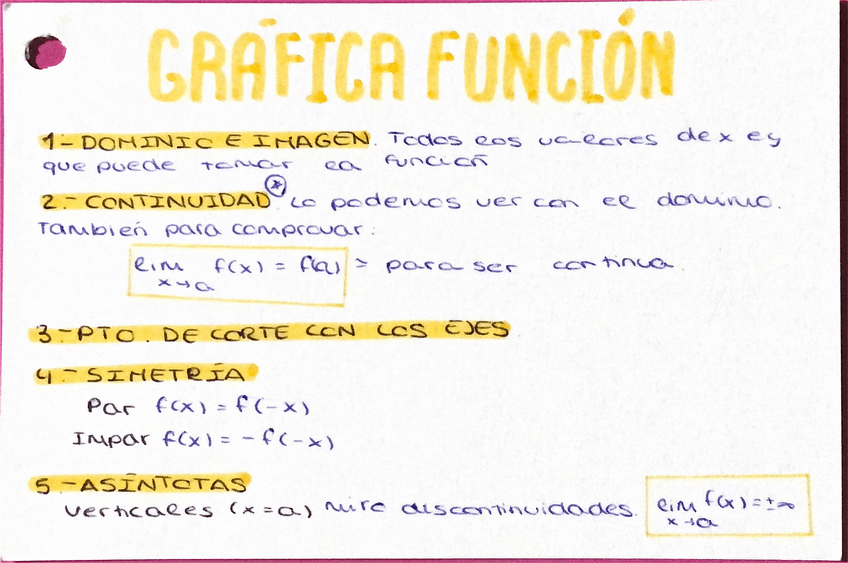 GRÁFICA FUNCIÓN
1- DOMINIO E IMAGEN. Todos los valores de x e y
que puede tomar la función
2.- CONTINUIDAD (*). Lo podemos ver con el dominio.
También para comprovar:
lim f(x) = f(a) > para ser continua.
x→a
3- PTO. DE CORTE CON LOS EJES
4.- SIMETRÍA
Par f(x) = f(-x)
Impar f(x) = -f(-x)
5.-ASÍNTOTAS
Verticales (x=a) miro discontinuidades. lim f(x) = ±∞
x→a